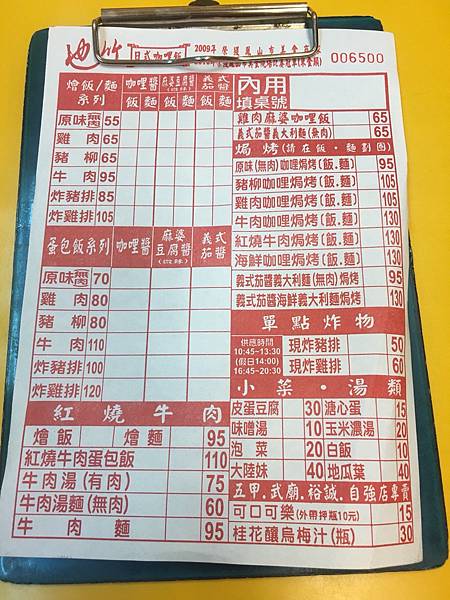 池竹 日式咖哩飯
2009年 榮獲鳳山市美食
006500
燴飯/麵系列 咖哩醬 麻婆豆腐醬(微辣) 義式茄醬
飯 麵 飯 麵 飯 麵
原味無肉55
雞肉65
豬柳65
牛肉95
炸豬排85
炸雞排105
蛋包飯系列 咖哩醬 麻婆豆腐醬(微辣) 義式茄醬
原味無肉70
雞肉80
豬柳80
牛肉110
炸豬排100
炸雞排120
紅燒牛肉
燴飯 燴麵 95
紅燒牛肉蛋包飯 110
牛肉湯(有肉) 75
牛肉湯麵(無肉) 60
牛肉麵 95
內用
填桌號
雞肉麻婆咖哩飯 65
義式茄醬義大利麵(無肉) 65
焗烤(請在飯·麵劃圈)
原味(無肉)咖哩焗烤(飯.麵) 95
豬柳咖哩焗烤(飯.麵) 105
雞肉咖哩焗烤(飯.麵) 105
牛肉咖哩焗烤(飯.麵) 130
紅燒牛肉焗烤(飯.麵) 130
海鮮咖哩焗烤(飯.麵) 130
義式茄醬義大利麵(無肉)焗烤 95
義式茄醬海鮮義大利麵焗烤 130
單點炸物
供應時間
10:45~13:30
(假日14:00)
16:45~20:30
現炸豬排 50
現炸雞排 60
小菜·湯類
皮蛋豆腐 30 溏心蛋 15
味噌湯 10 玉米濃湯 20
泡菜 20 白飯 10
大陸妹 40 地瓜葉 40
五甲.武廟.裕誠.自強店專賣
可口可樂(外帶押瓶10元) 15
桂花釀烏梅汁(瓶) 30